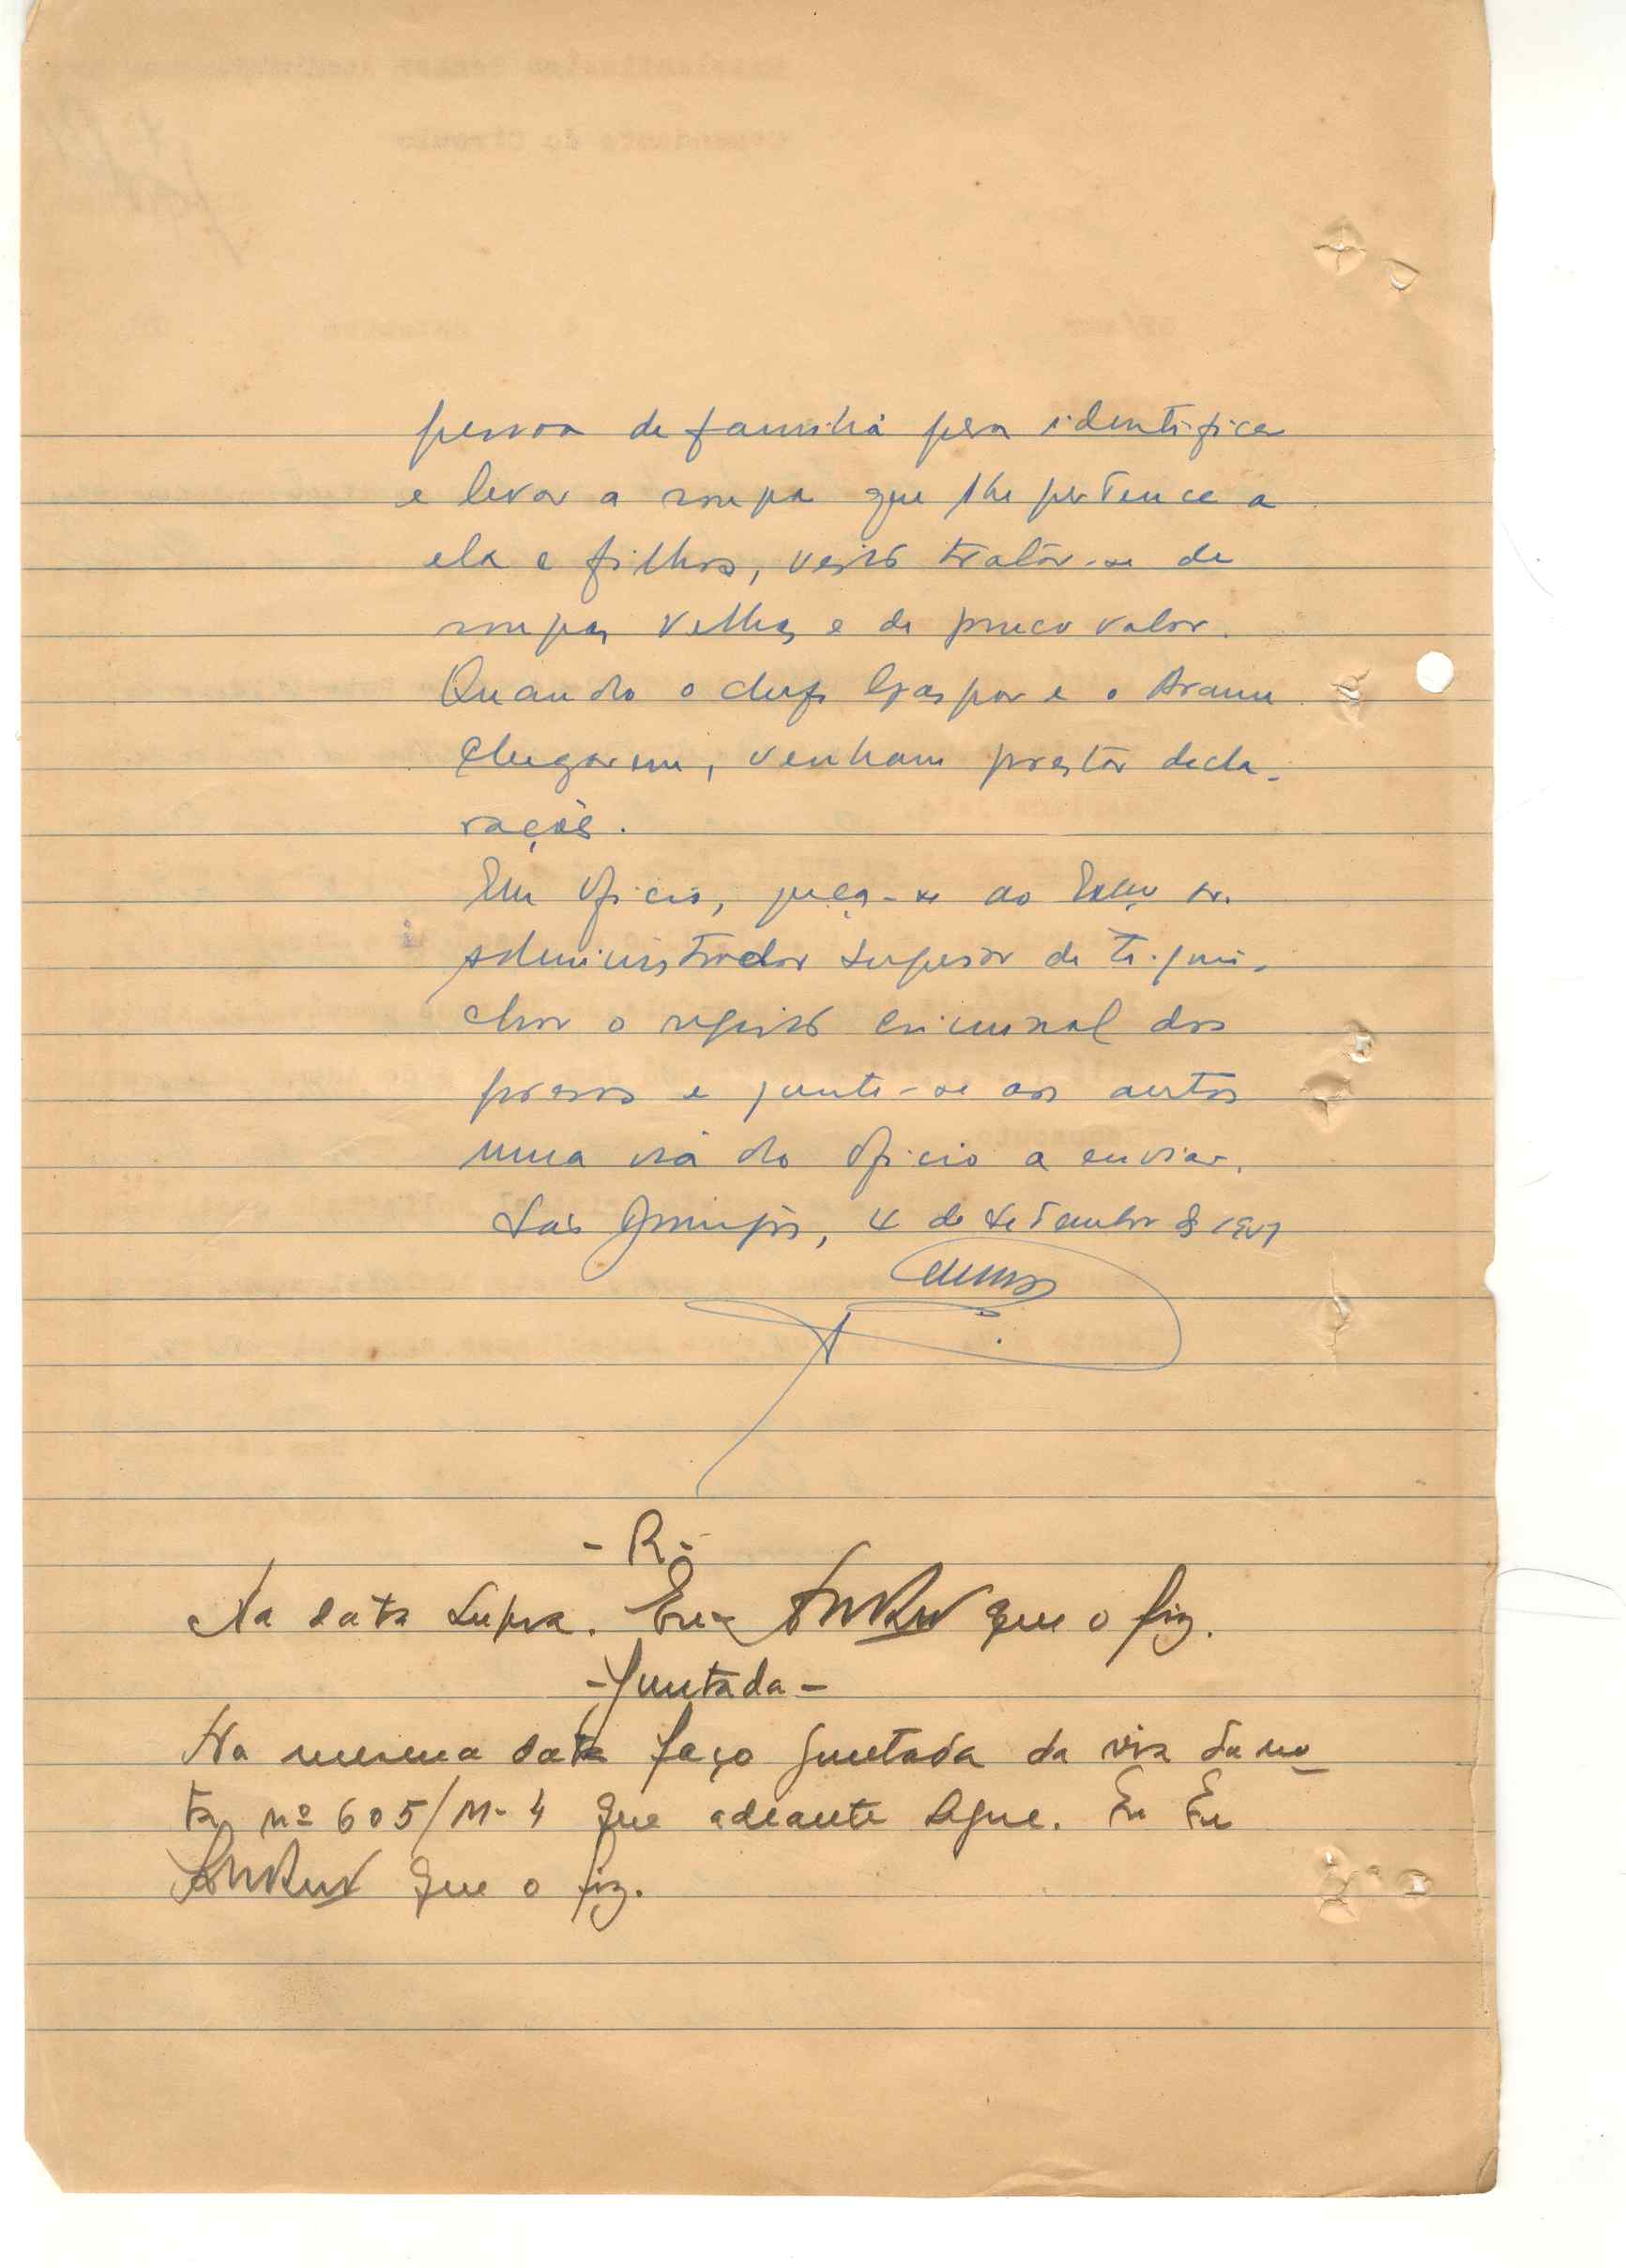 pessoa de familia para identificar
e levar a roupa que lhe pertence a
ela e filhos, visto tratar-se de
roupas velhas e de pouco valor.
Quando o chefe Gaspar e o
chegarem, venham prestar decla-
rações.
Em oficio, peça-se ao Exmº Sr.
administrador de
o registo criminal dos
presos e junte-se aos autos
uma via do oficio a enviar.
São Domingos, 4 de Setembro de
- R -
Na data supra. Eu que o fiz.
- Juntada -
Na mesma data faço juntada da via da no-
ta nº 605/M-4 que adeante segue. Eu Eu
que o fiz.